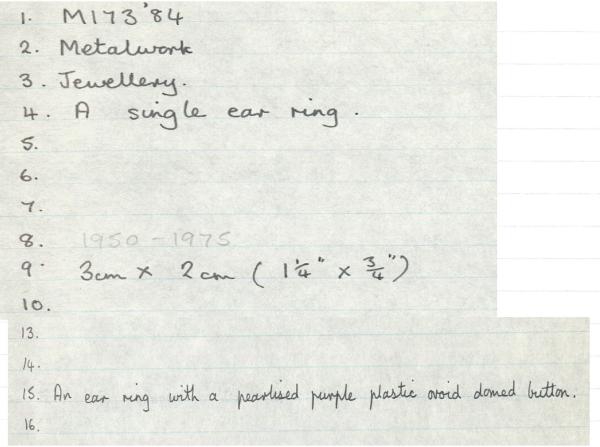 1. M173'84
2. Metalwork
3. Jewellery.
4. A single ear ring.
5.
6.
7.
8. 1950 - 1975
9. 3cm x 2cm ( 1 1/4" x 3/4" )
10.
13.
14.
15. An ear ring with a pearlised purple plastic ovoid domed button.
16.